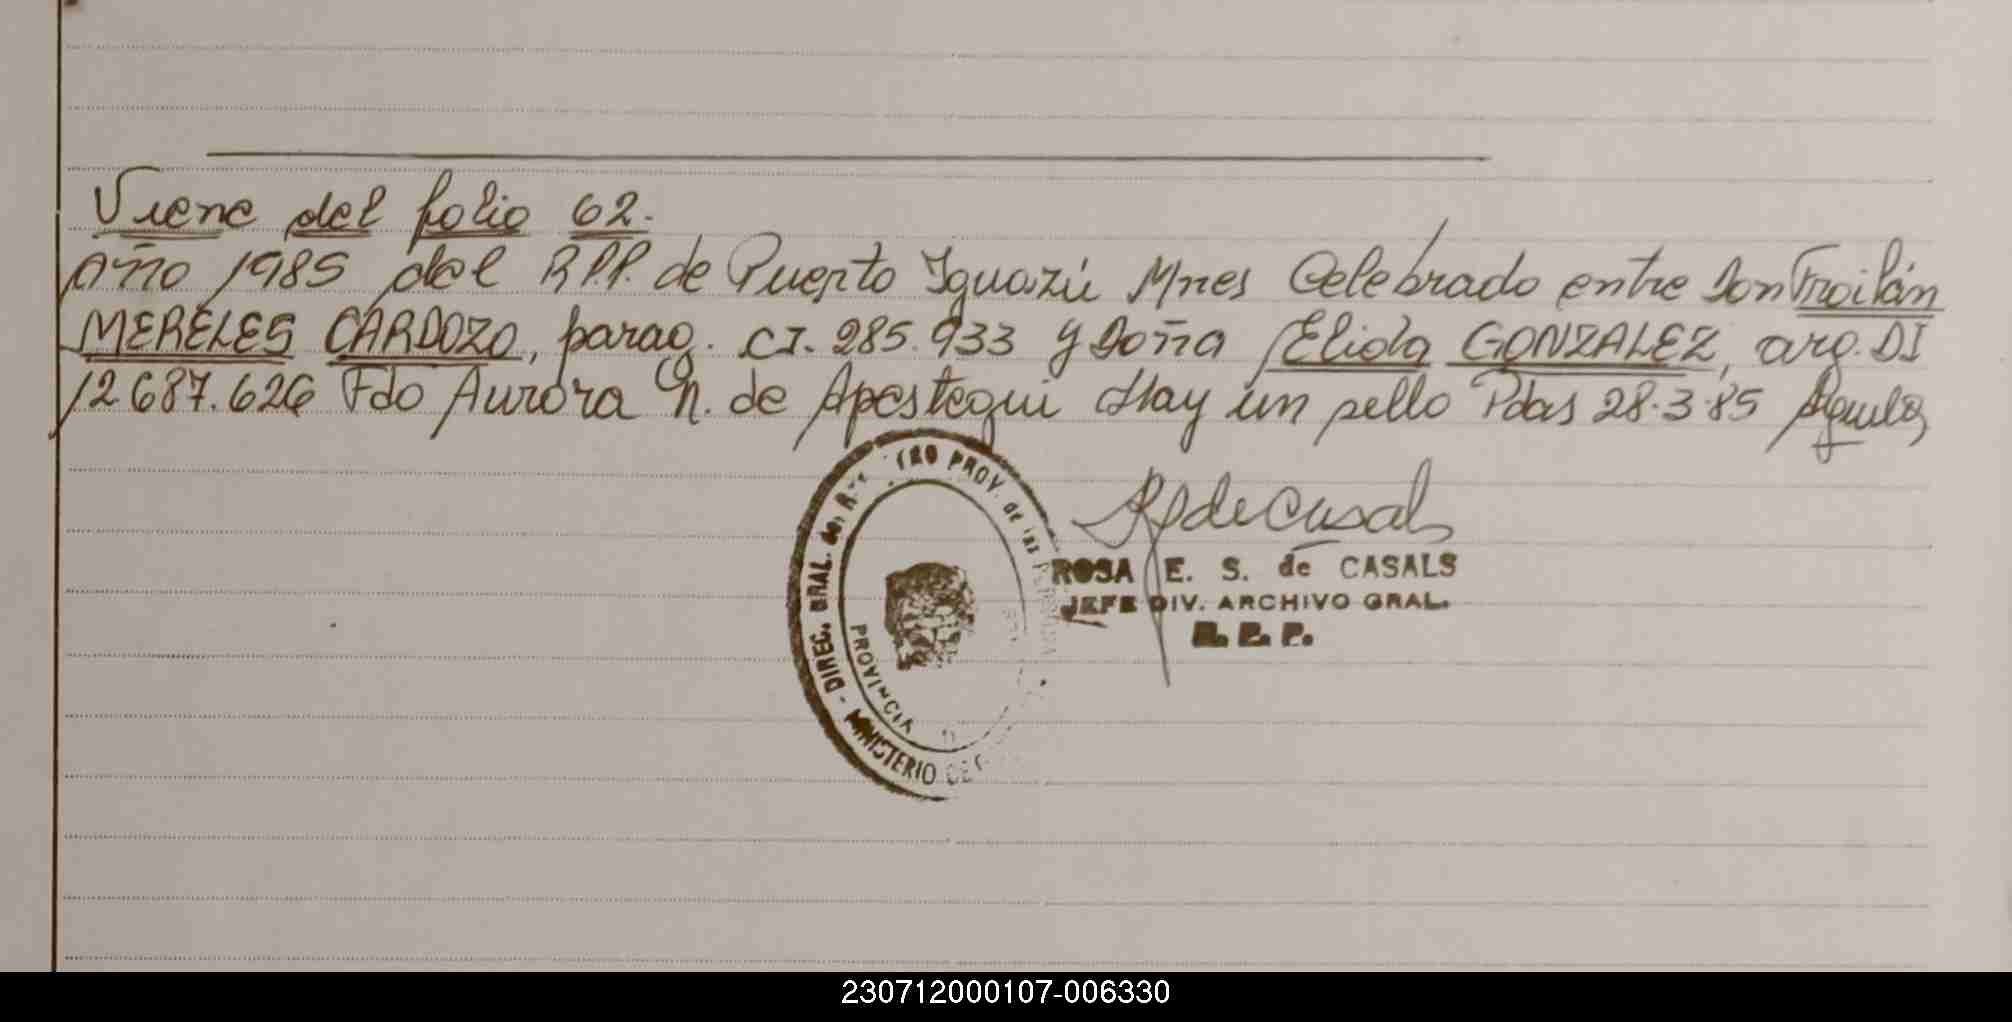 Viene del folio 62.
Año 1985 del R.P.P. de Puerto Iguazú Mnes Celebrado entre Don Froilán
MERELES CARDOZO, parag. CI. 285.933 y Doña Elida GONZALEZ, arg. DI
12687.626 Fdo Aurora N. de Apestegui Hay un sello Pdas 28.3.85
ROSA E. S. de CASALS
JEFE DIV. ARCHIVO GRAL.
R. P. P.
DIREC. GRAL. del PROV. de las
MINISTERIO
PROVINCIA
230712000107-006330